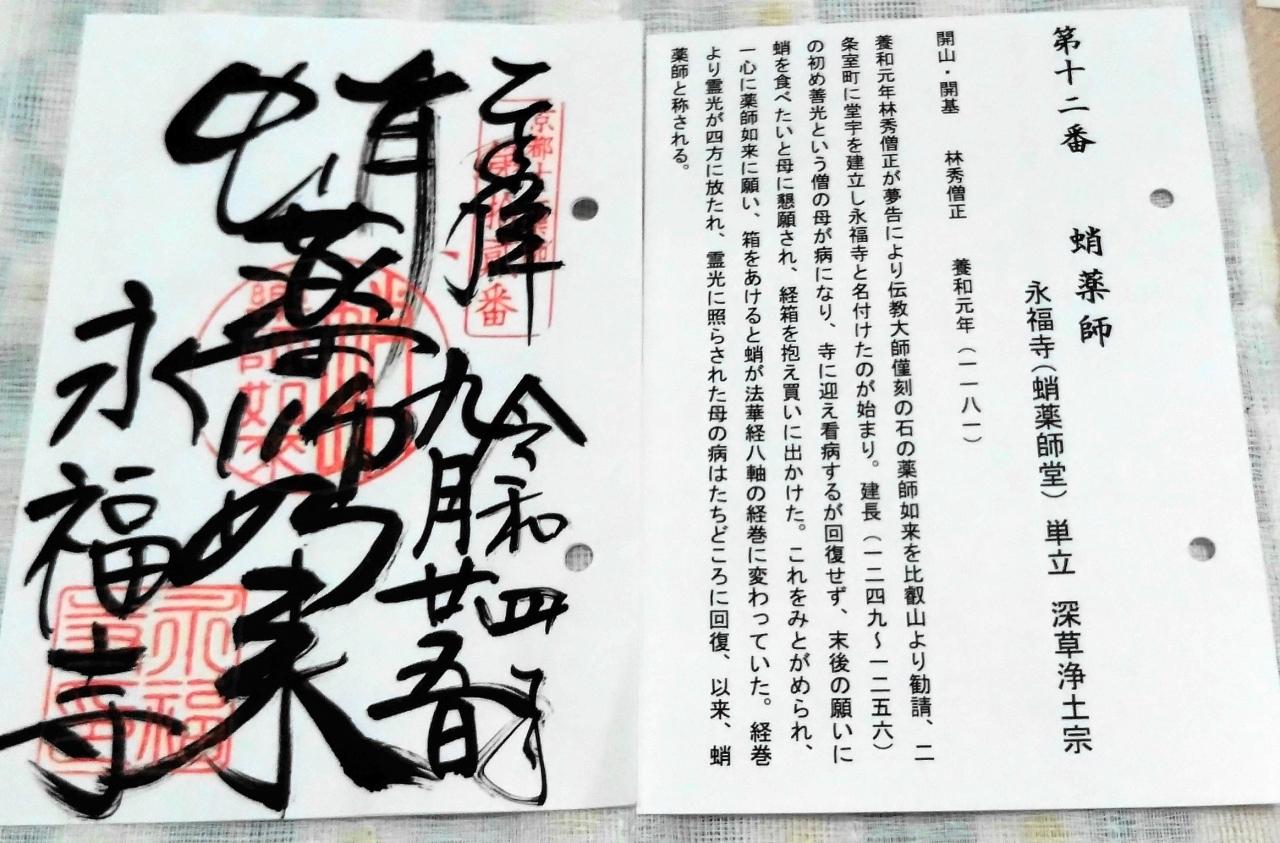 第十二番 蛸薬師
永福寺(蛸薬師堂) 単立 深草浄土宗
開山・開基 林秀僧正 養和元年(一一八一)
養和元年林秀僧正が夢告により伝教大師僅刻の石の薬師如来を比叡山より勧請、二
条室町に堂宇を建立し永福寺と名付けたのが始まり。建長(一二四九〜一二五六)
の初め善光という僧の母が病になり、寺に迎え看病するが回復せず、末後の願いに
蛸を食べたいと母に懇願され、経箱を抱え買いに出かけた。これをみとがめられ、
一心に薬師如来に願い、箱をあけると蛸が法華経八軸の経巻に変わっていた。経巻
より霊光が四方に放たれ、霊光に照らされた母の病はたちどころに回復、以来、蛸
薬師と称される。
奉拝
令和四年
九月廿五日
蛸薬師如来
永福寺
永福